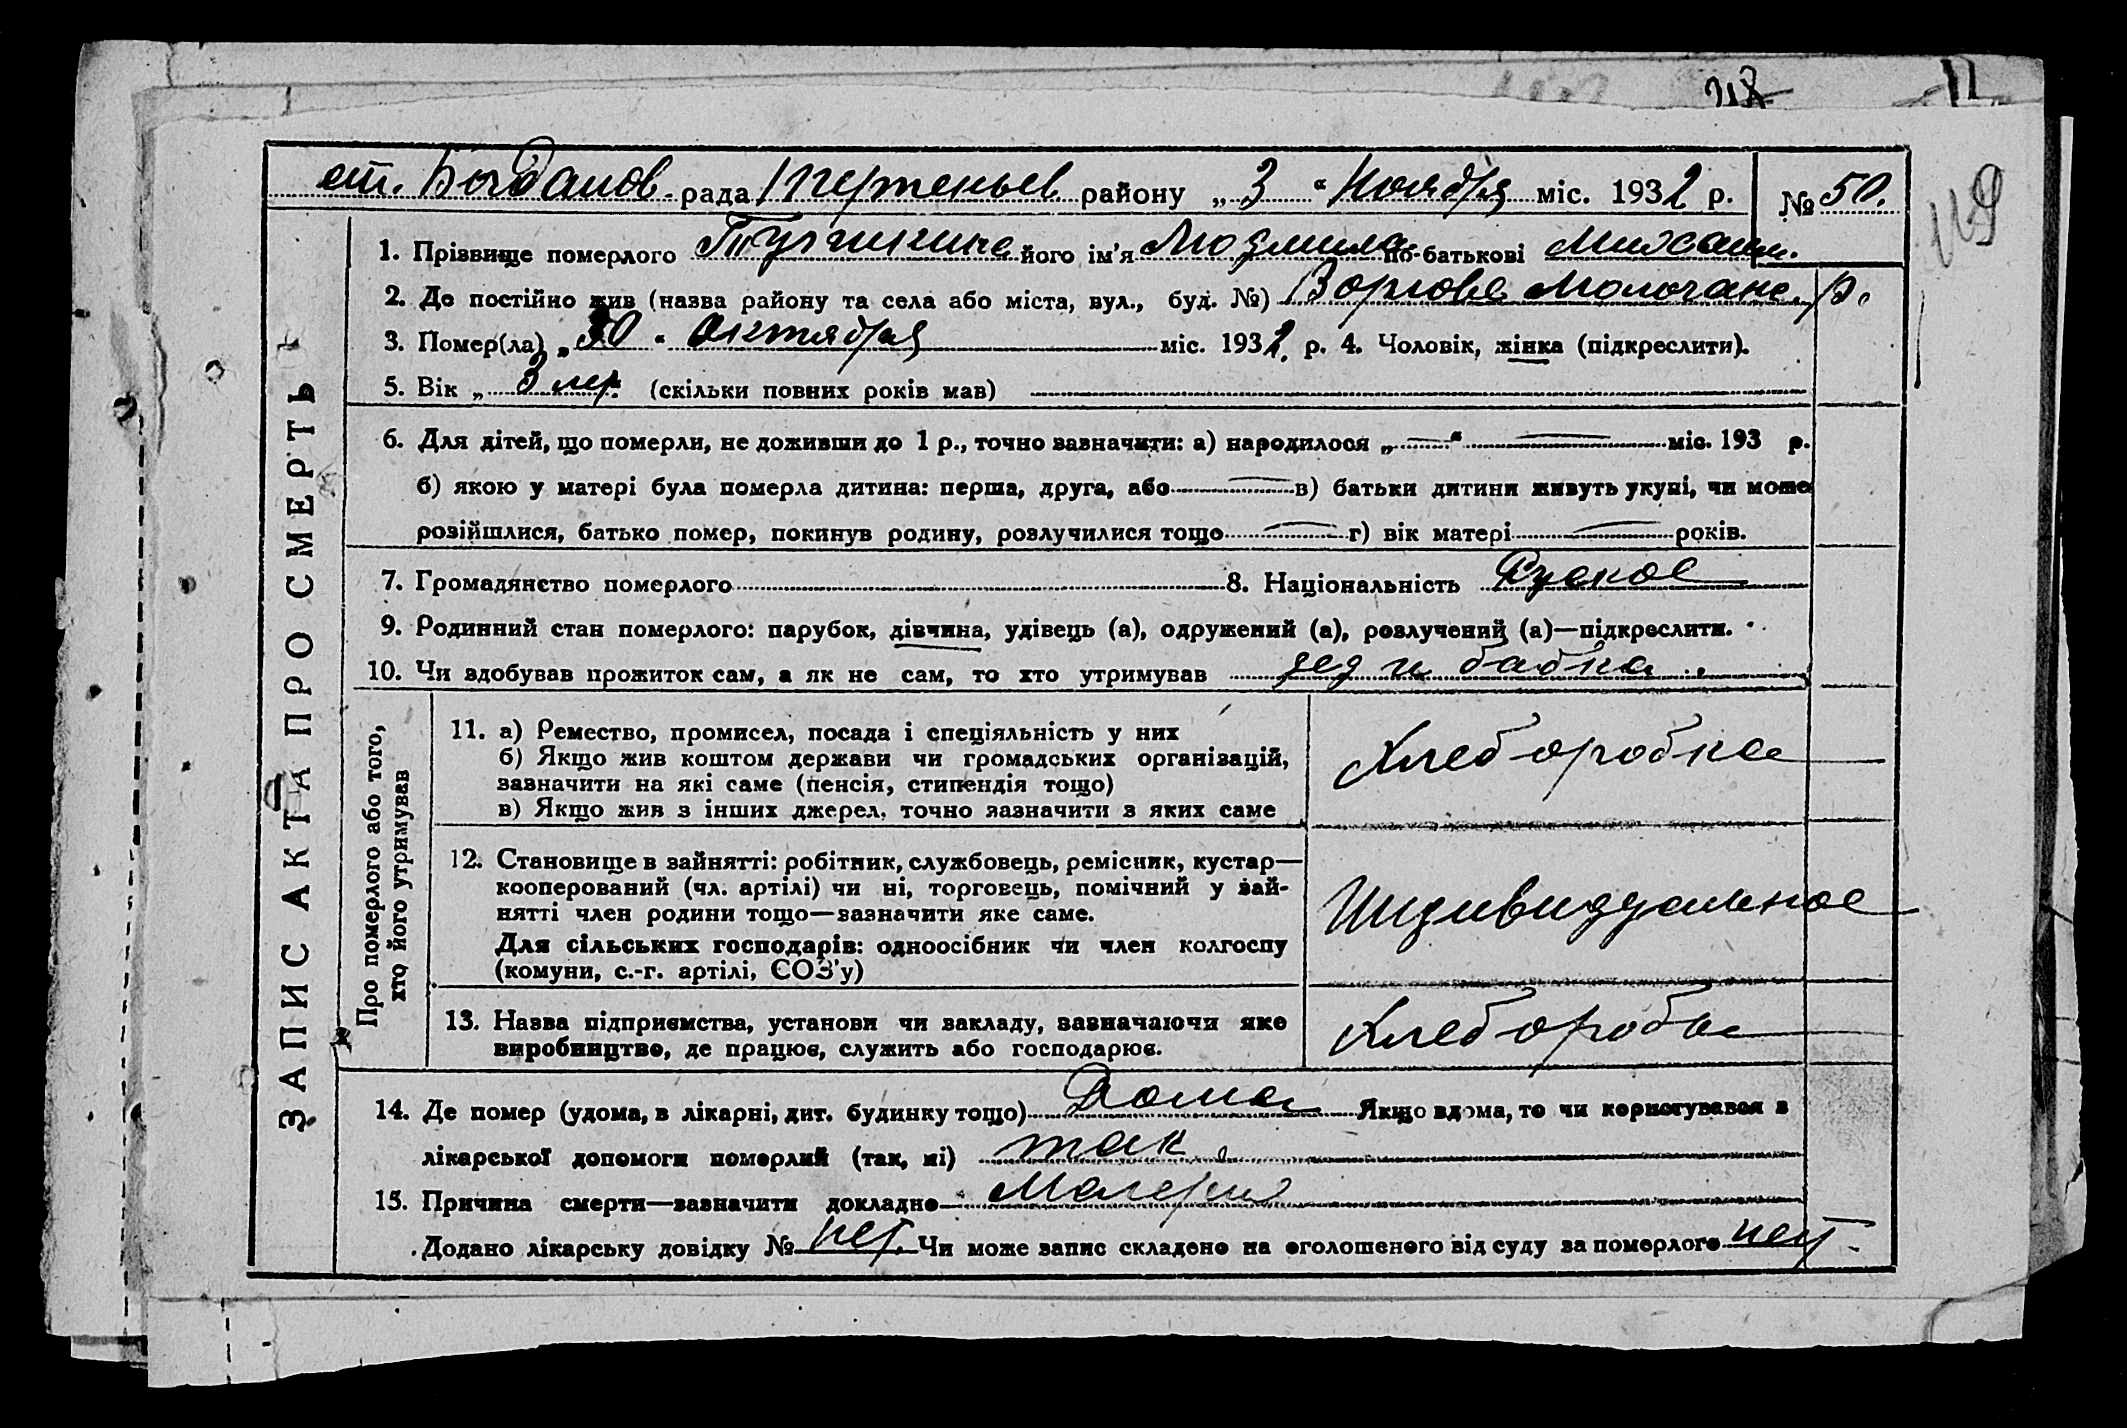 ст. Богданов. рада район у „ 3 “ Ноября міс. 1932 р. № 50.
ЗАПИС АКТА ПРО СМЕРТЬ
1. Прізвище померлого його ім'я Людмила по-батькові
2. Де постійно жив (назва району та села або міста, вул., буд. №) Молочанс. р.
3. Помер(ла) „ 30 “ Октября міс. 1932 р. 4. Чоловік, жінка (підкреслити).
5. Вік „ 3 лет. (скільки повних років мав)
6. Для дітей, що померли, не доживши до 1 р., точно зазначити: а) народилося „ — “ — міс. 193 р.
б) якою у матері була померла дитина: перша, друга, або — в) батьки дитини живуть укупі, чи може
розійшлися, батько помер, покинув родину, розлучилися тощо — г) вік матері — років.
7. Громадянство померлого 8. Національність Руское
9. Родинний стан померлого: парубок, дівчина, удівець (а), одружений (а), розлучений (а)—підкреслити.
10. Чи здобував прожиток сам, а як не сам, то хто утримував дед и бабка.
Про померлого або того,
хто його утримував
11. а) Ремество, промисел, посада і спеціяльність у них
б) Якщо жив коштом держави чи громадських організацій,
зазначити на які саме (пенсія, стипендія тощо)
в) Якщо жив з інших джерел, точно зазначити з яких саме
Хлеборобка
12. Становище в зайнятті: робітник, службовець, ремісник, кустар—
кооперований (чл. артілі) чи ні, торговець, помічний у зай-
нятті член родини тощо—зазначити яке саме.
Для сільських господарів: одноосібник чи член колгоспу
(комуни, с.-г. артілі, СОЗ'у)
Индивидуальное
13. Назва підприємства, установи чи закладу, зазначаючи яке
виробництво, де працює, служить або господарює.
Хлеборобы
14. Де помер (удома, в лікарні, дит. будинку тощо) Дома Якщо вдома, то чи користувався з
лікарської допомоги померлий (так, ні) так
15. Причина смерти—зазначити докладно— Малерия
Додано лікарську довідку № нет. Чи може запис складено на оголошеного від суду за померлого нет.